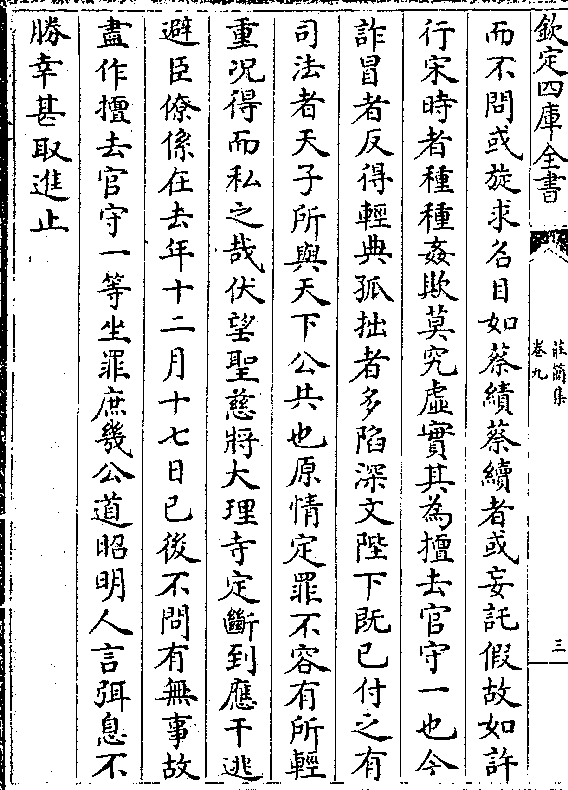 欽定四庫全書
莊簡集
卷九
三
而不問或旋求名目如蔡績蔡續者或妄託假故如許
行宋時者種種姦欺莫究虛實其為擅去官守一也今
詐冒者反得輕典孤拙者多陷深文陛下既已付之有
司法者天子所與天下公共也原情定罪不容有所輕
重况得而私之哉伏望聖慈將大理寺定斷到應干逃
避臣僚係在去年十二月十七日已後不問有無事故
盡作擅去官守一等坐罪庶幾公道昭明人言弭息不
勝幸甚取進止